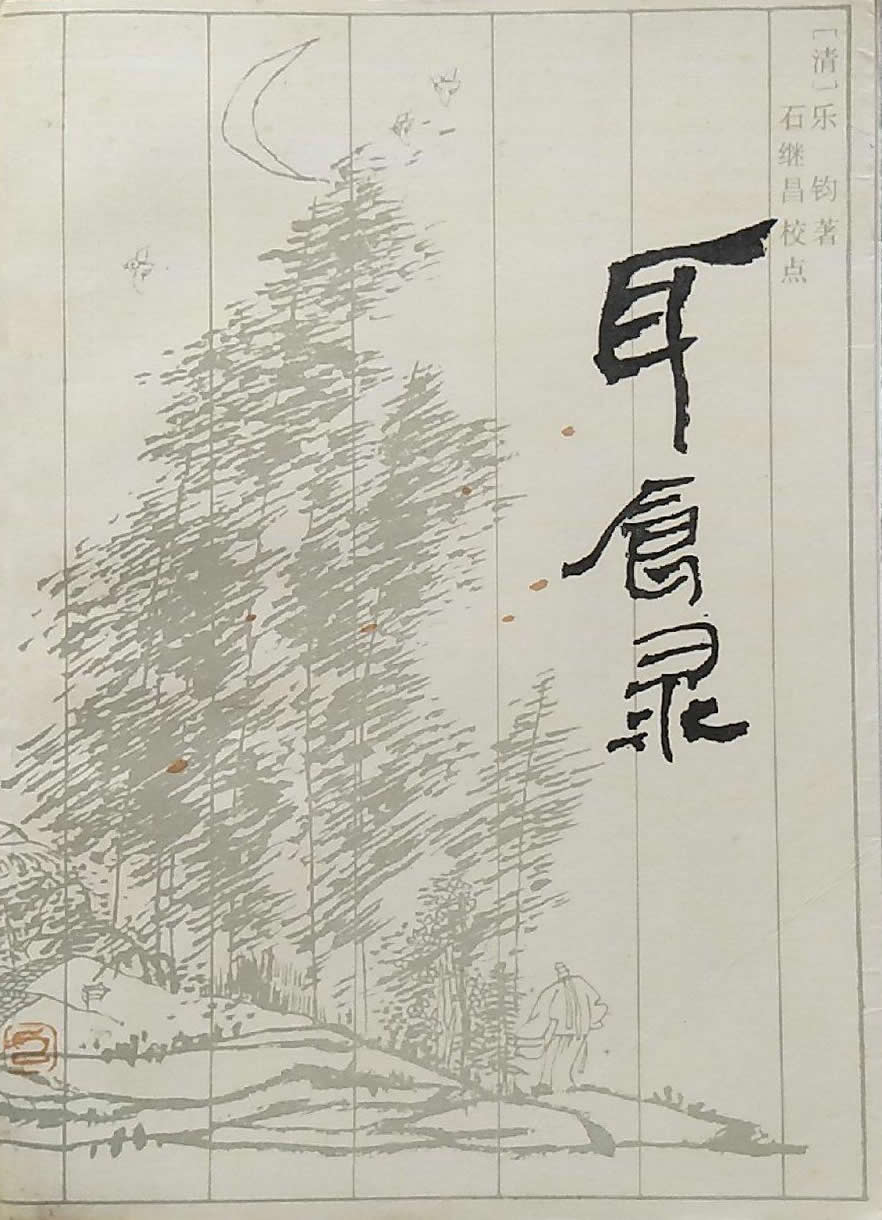 [清]乐 钧著
石继昌校点
耳食录